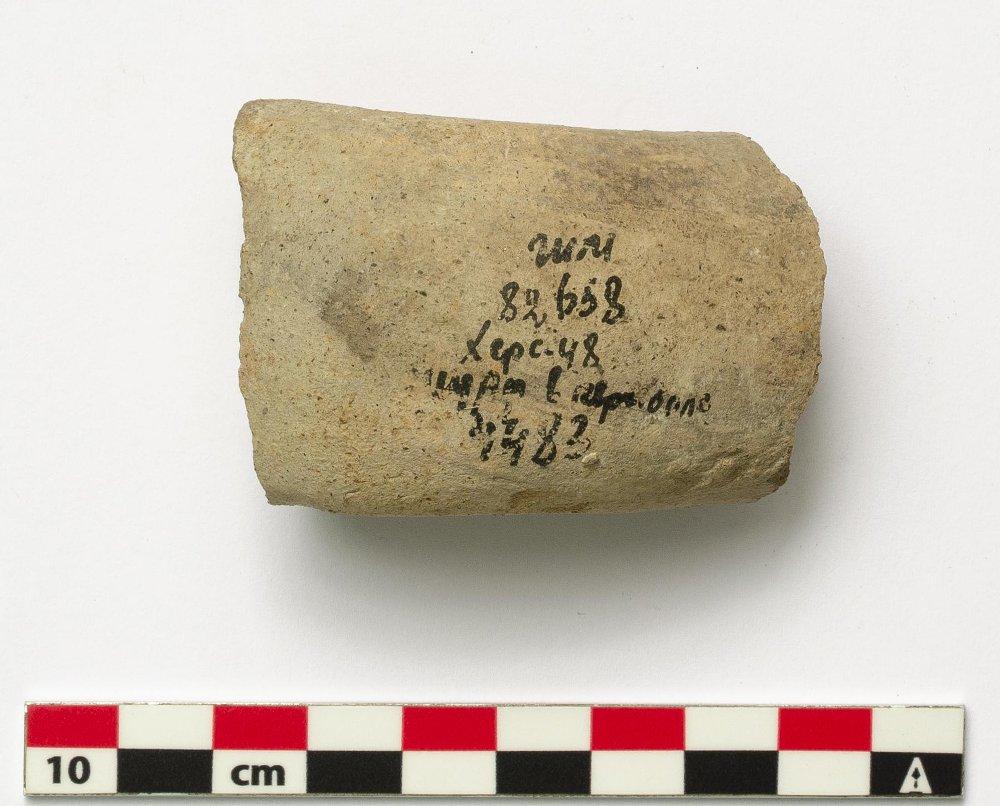 гим
82658
Херс. 48
в
1483
10 cm